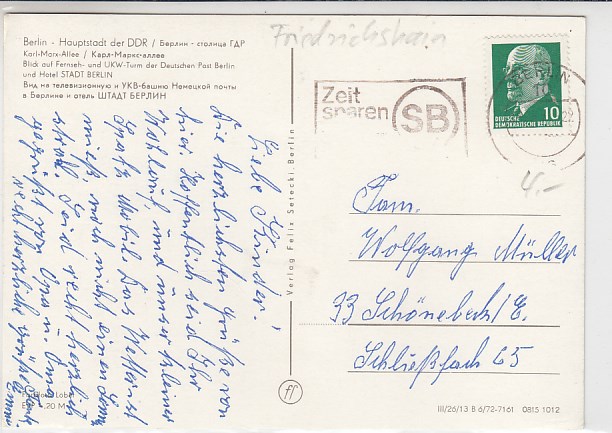 Berlin - Hauptstadt der DDR / Берлин - столица ГДР
Karl-Marx-Allee / Карл-Маркс-аллее
Blick auf Fernseh- und UKW-Turm der Deutschen Post Berlin
und Hotel STADT BERLIN
Вид на телевизионную и УКВ-башню Немецкой почты
в Берлине и отель ШТАДТ БЕРЛИН
Friedrichshain
Zeit
sparen
SB
BERLIN
DEUTSCHE
DEMOKRATISCHE REPUBLIK
10
4.-
Liebe Kinder!
Die herzlichsten Grüße von
hier. Hoffentlich seid Ihr
und unser kleiner
Spatz
mich noch nicht einen
Seid recht herzlich
gegrüßt von Opa u. Oma
recht herzliche Grüße
Verlag Felix Setecki, Berlin
Fam.
Wolfgang Müller
33 Schönebeck/E.
Schließfach 65
Foto
EVP -,20 M
III/26/13 B 6/72-7161 0815 1012